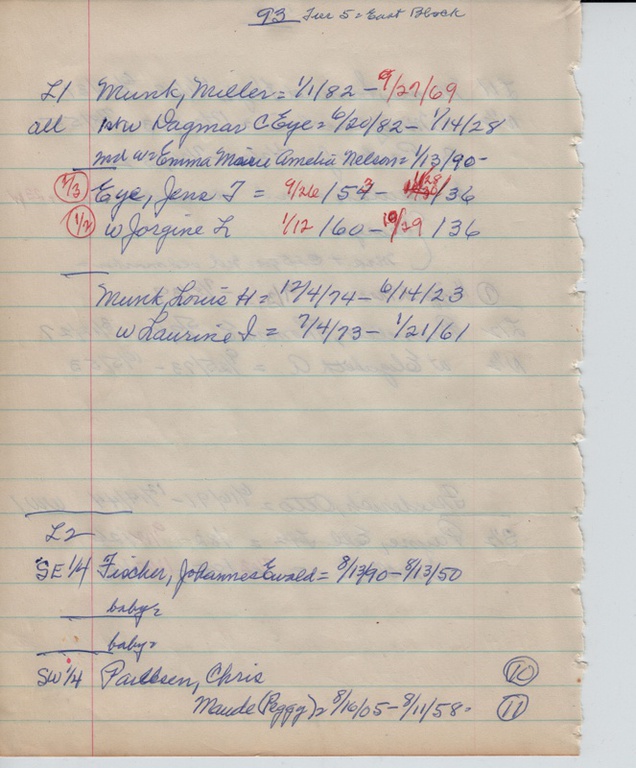 93 Tier 5 = East Block
L1 Munk, Miller = 1/1/82 - 9/27/69
all 1st w Dagmar C Eye = 6/20/82 - 7/14/28
2nd w = Emma Marie Amelia Nelson = 1/13/90 -
Eye, Jens T = 9/26/54 - 11/28/36
1/2 w Jorgine L 1/12/60 - 10/29/36
Munk, Louis H = 12/4/74 - 6/14/23
w Laurine I = 7/4/73 - 1/21/61
L2
SE 1/4 Fischer, Johannes Ewald = 8/13/90 - 8/13/50
baby =
baby =
SW 1/4 Paulsen, Chris 10
Maude (Peggy) = 8/16/05 - 8/11/58 = 11